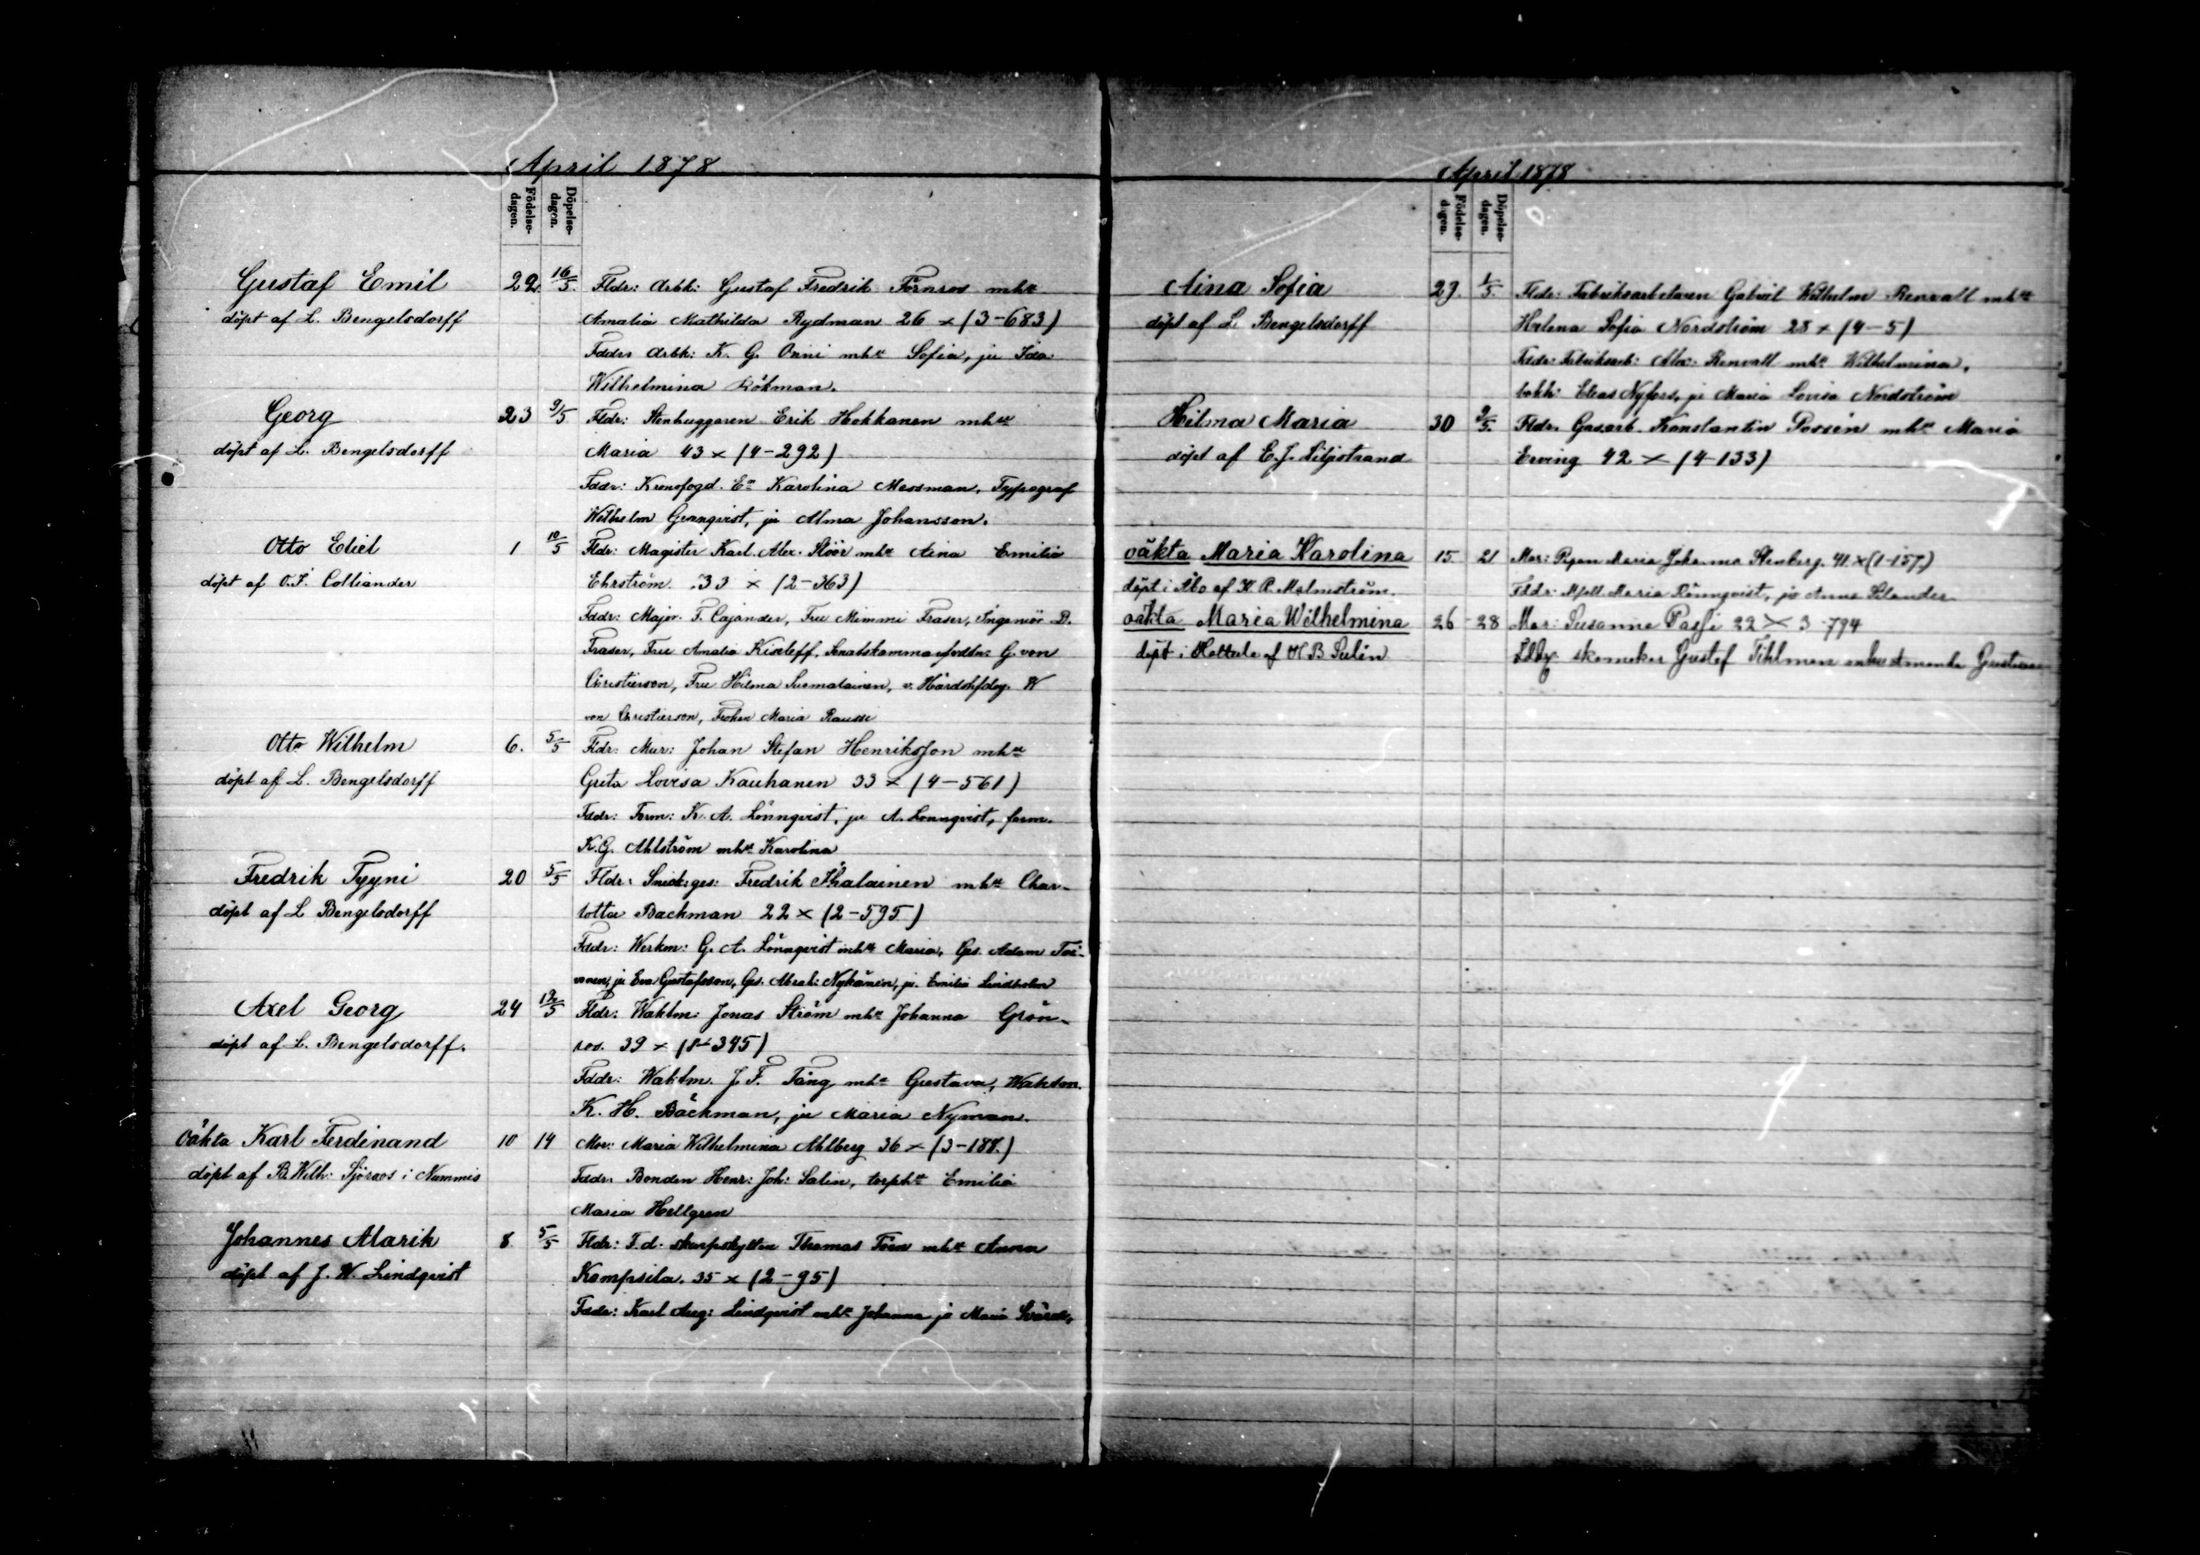 April 1878
Födelse-dagen.
Döpelse-dagen.
Gustaf Emil 22. 16/5. Fldr: Arbk: Gustaf Fredrik Törnros mhu
döpt af L. Bengelsdorff Amalia Mathilda Rydman 26 × (3-683)
Fddr: Arbk: K. G. Onni mhu Sofia, pi Ida
Wilhelmina Rökman.
Georg 23 9/5 Fldr: Stenhuggaren Erik Hokkanen mhu
döpt af L. Bengelsdorff Maria 43 × (4-292)
Fddr: Kronofogd. Ea Karolina Messman, Typograf
Wilhelm Granqvist, pi Alma Johansson.
Otto Eliel 1 10/5 Fldr: Magister Karl Alex. Slöör mhu Aina Emilia
döpt af O.I. Colliander Ehrström. 33 × (2-363)
Fddr: Major F. Cajander, Fru Mimmi Fraser, Ingeniör D.
Fraser, Fru Amalia Kiseleff, G. von
Christierson, Fru Hilma Suomalainen, v. Häradshfdg. W
von Christierson, Fröken Maria
Otto Wilhelm 6. 5/5 Fldr: Mur: Johan Stefan Henriksson mhu
döpt af L. Bengelsdorff Greta Lovisa Kauhanen 33 × (4-561)
Fddr: Form: K. A. Lönnqvist, pi A. Lönnqvist, form.
K.G. Ahlström mhu Karolina
Fredrik Tyyni 20 5/5 Fldr: Snickges: Fredrik Ihalainen mhu Char-
döpt af L Bengelsdorff lotta Backman 22 × (2-595)
Fddr: Werkm: G. A. Lönnqvist mhu Maria, Ges. Adam Toi-
vonen, pi Eva Gustafsson, Ges. Abrah: Nykänen, pi. Emilia Lindholm
Axel Georg 24 12/5 Fldr: Waktm: Jonas Ström mhu Johanna Grön-
döpt af L. Bengelsdorff. ros. 39 × (1-345)
Fddr: Waktm. J. F. Tång mhu Gustava, Waktm.
K. H. Bäckman, pi Maria Nyman.
Oäkta Karl Ferdinand 10 14 Mor: Maria Wilhelmina Ahlberg 36 × (3-188.)
döpt af B. Wilh: Sjöroos i Nummis Fddr: Bonden Henr: Joh: Salin, torphu Emilia
Maria Hellgren
Johannes Alarik 8. 5/5 Fldr: F.d. skarpskytten Thomas mhu Anna
döpt af J. W. Lindqvist Kempsila. 35 × (2-95)
Fddr: Karl Aug: Lindqvist mhu Johanna pi Maria Svärd.
April 1878
Födelse-dagen.
Döpelse-dagen.
Aina Sofia 29. 1/5. Fldr: Fabriksarbetaren Gabriel Wilhelm Renvall mhu
döpt af L Bengelsdorff Helena Sofia Nordström 28 × (4-5)
Fddr: Fabriksarb: Alex: Renvall mhu Wilhelmina,
Elias Nyfors, pi Maria Lovisa Nordström
Hilma Maria 30 9/5. Fldr. Gasarb. Konstantin Possén mhu Maria
döpt af E. J. Liljestrand Erving 42 × (4-133)
oäkta Maria Karolina 15. 21 Mor: Pigan Maria Johanna Stenberg. 41 × (1-157)
döpt i Åbo af K. R. Malmström. Fddr: Maria Rönnqvist, pi Anna Selander
oäkta Maria Wilhelmina 26 - 28 Mor: Susanna Passi 22 × 3-794
döpt i Hattula af K B Selin skomakar Gustaf Tihlman Gustava